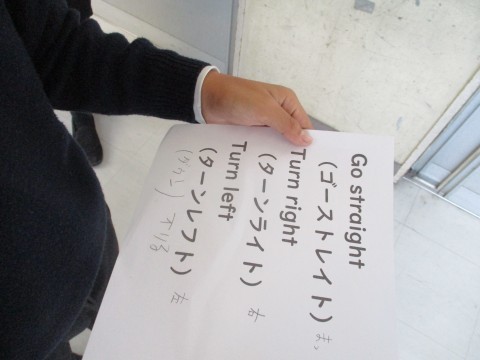 Go straight
(ゴーストレイト)
Turn right
(ターンライト) 右
Turn left
(ターンレフト) 左